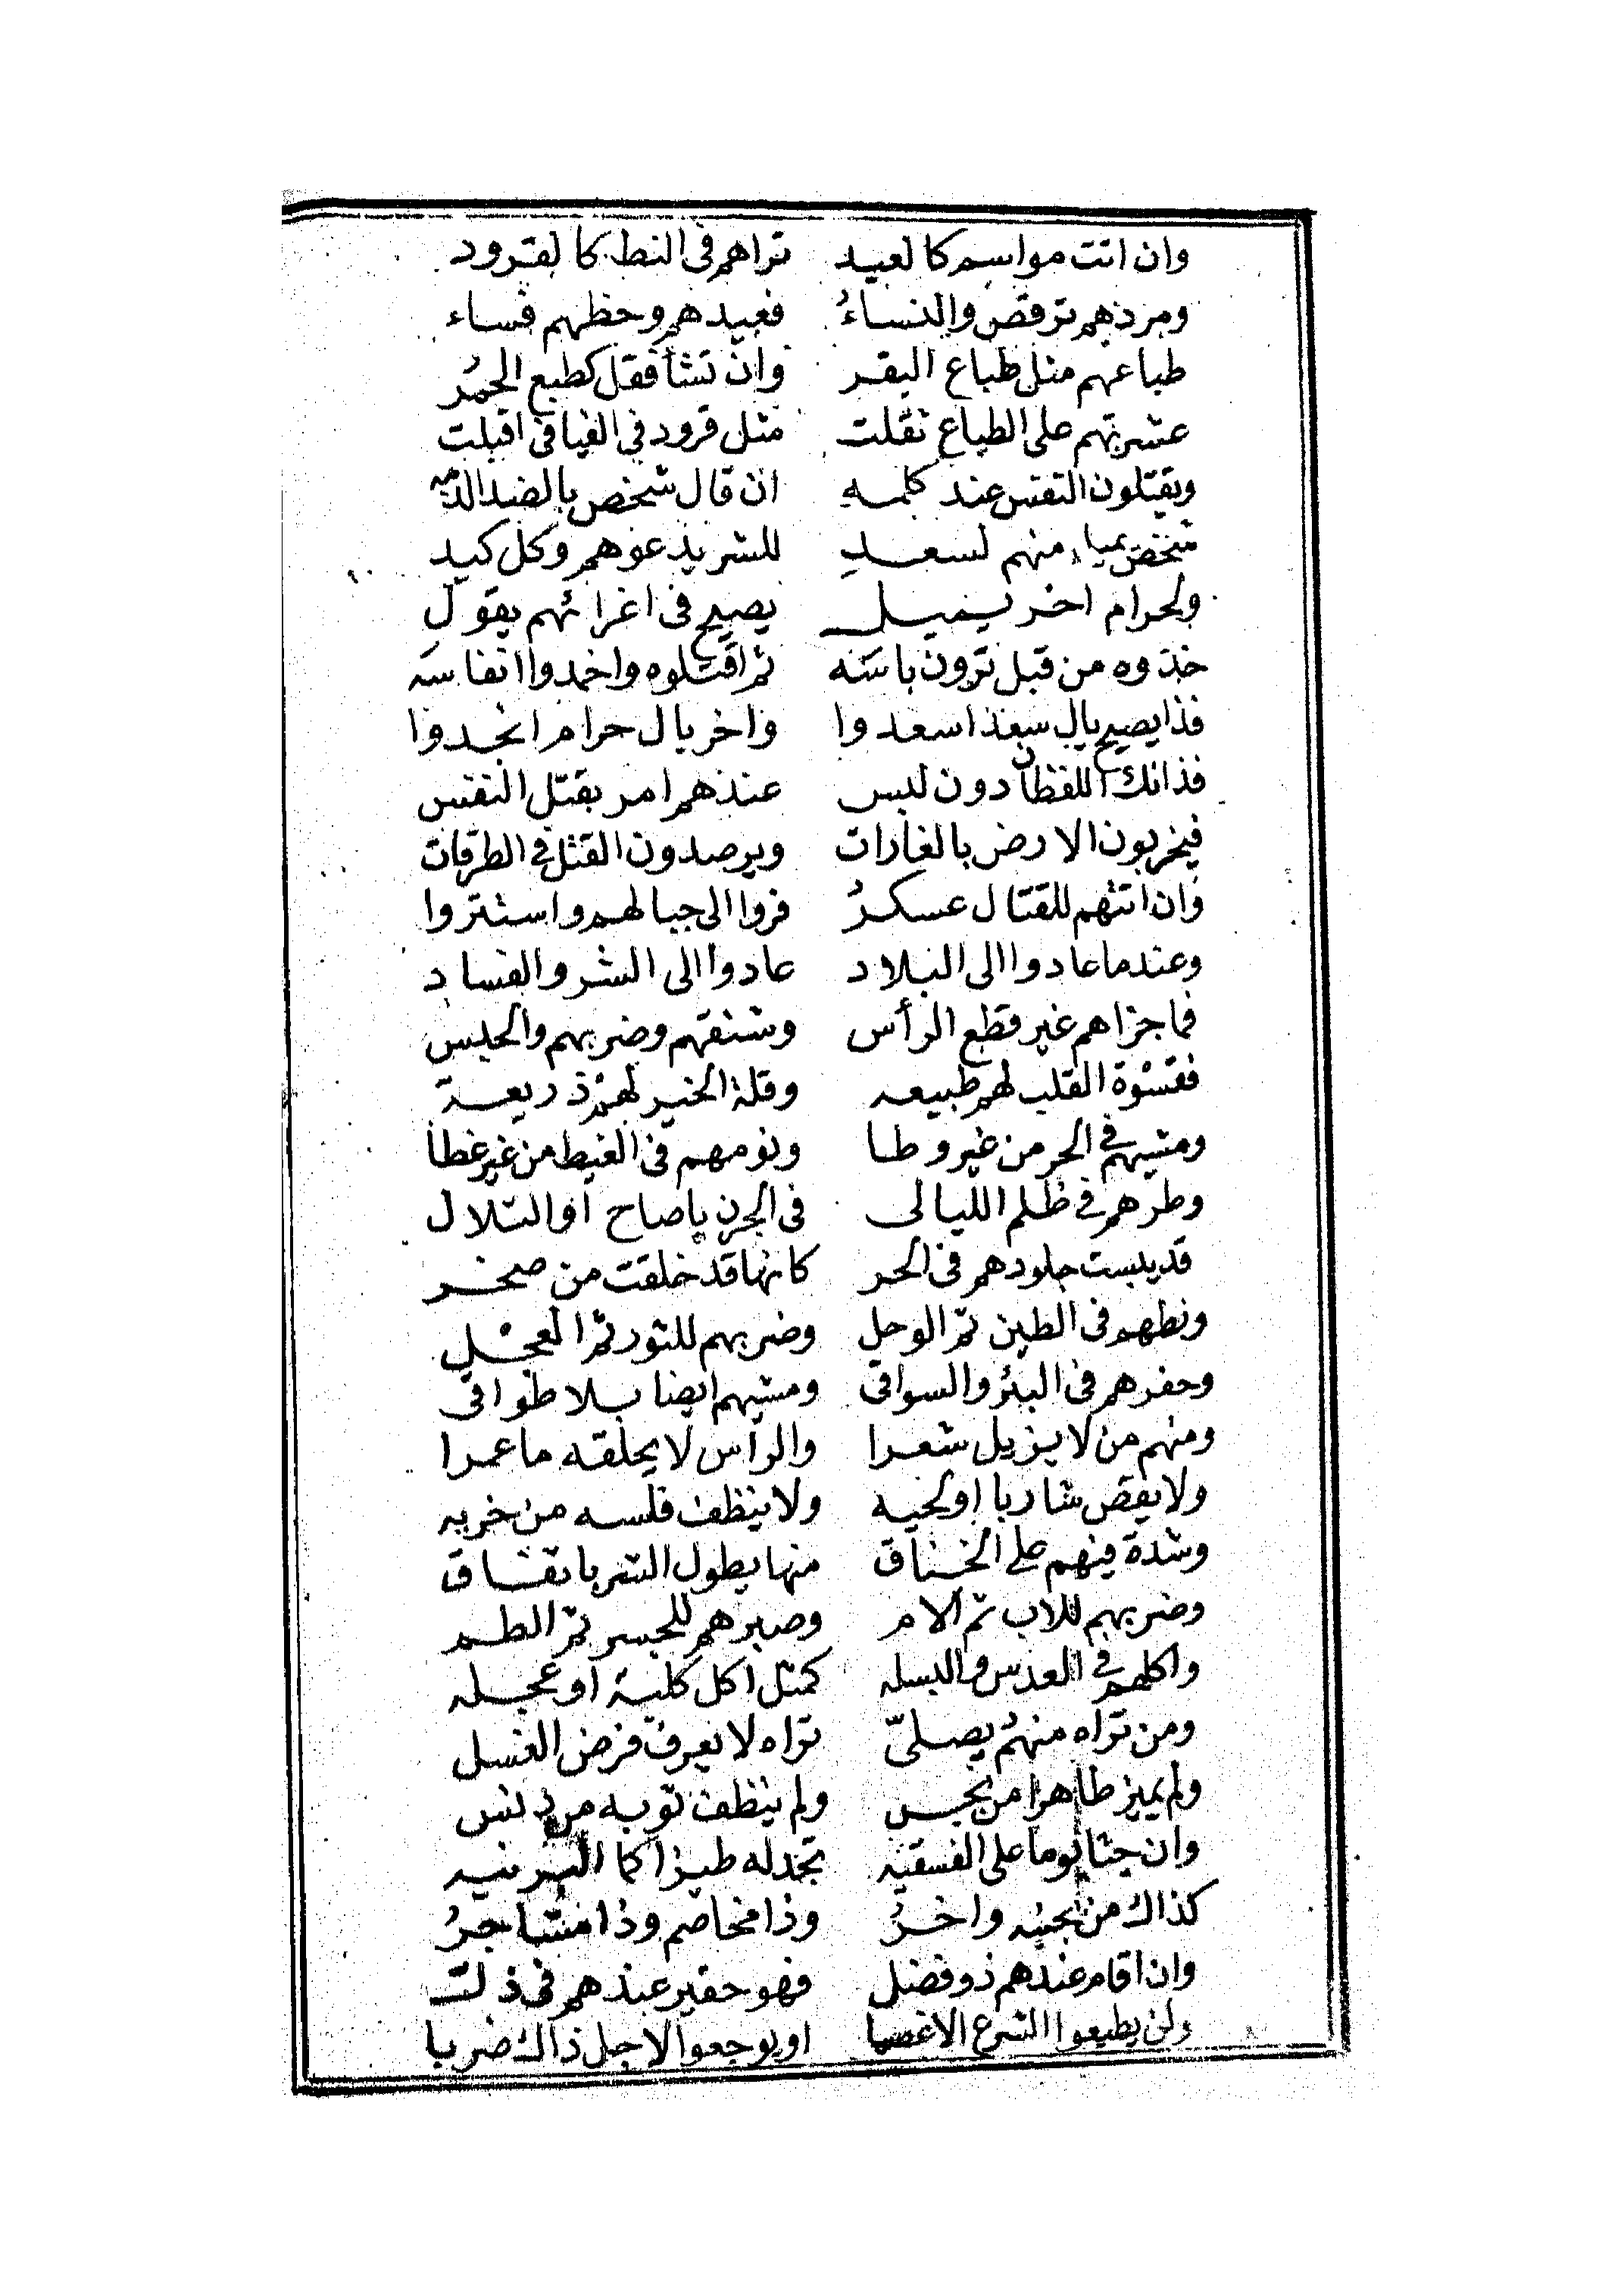 وان اتت مواسم كالعيد تراهم فى النط كالقرود
ومردهم ترقص والنساءُ فعيدهم وحظهم فساء
طباعهم مثل طباع البقر وان تشأ فقل كطبع الحمُر
عشرتهم على الطباع نقلت مثل قرود فى الفيافى اقبلت
ويقتلون النفس عند كلمهِ ان قال شخص بالضد
شخص منهم لسعدِ للشر يدعوهم وكل كيد
ولحرام اخر يميل يصيح فى اغرائهم يقول
خذوه من قبل ترون باسه ثم اقتلوه واخمدوا انفاسه
فذا يصيح يال سعد اسعدوا واخر يال حرام انجدوا
فذانك اللفظان دون لبس عندهم امر بقتل النفس
فيخربون الارض بالغارات ويرصدون القتل فى الطرقات
وان اتتهم للقتال عسكرُ فروا الى جبالهم واستتروا
وعندما عادوا الى البلاد عادوا الى الشر والفساد
فما جزاهم غير قطع الرأس وشنقهم وضربهم والحبس
فقسْوة القلب لهم طبيعه وقلة الخير لهمْ ذريعة
ومشيهم فى الحر من غير وطا ونومهم فى الغيط من غير غطا
وطرهم فى ظلم الليالى فى الجرن ياصاح او التلال
قد يبست جلودهم فى الحر كانها قد خلقت من صخر
ونطهم فى الطين ثم الوحل وضربهم للثور ثم العجْل
وحفرهم فى البئر والسواقى ومشيهم ايضا بلا طواقى
ومنهم من لا يزيل شعرا والرأس لا يحلقه ما عمرا
ولا يقص شاربا او لحيه ولا ينظف فلسه من خريه
وشدة فيهم على الخناق منها يطول الشر باتفاق
وضربهم للاب ثم الام وصبرهم للجسر ثم الطم
واكلهم فى العدس والبسله كمثل اكل كلبة او عجله
ومن تراه منهمُ يصلىّ تراه لا يعرف فرض الغسل
ولم يميز طاهرا من نجس ولم ينظف ثوبه من دنس
وان جثا يوما على الفسقيه تجد له طيزا كما البرنيه
كذاك من بجنبه واخرُ وذا مخاصم وذا مشاجرُ
وان اقام عندهم ذو فضل فهو حقير عندهم فى ذل
ولن يطيعوا الشرع الا غصبا او يوجعوا لاجل ذاك ضربا